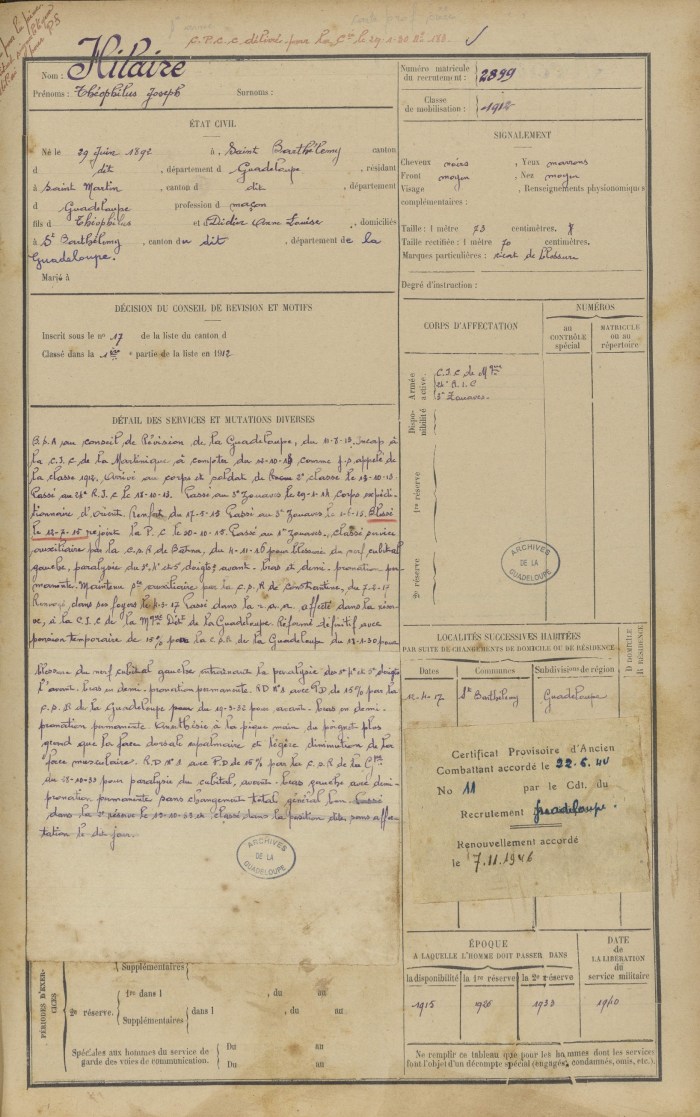 C.P.C.C délivré pour la
Nom : Hilaire
Prénoms : Théophilus Joseph Surnoms :
Numéro matricule du recrutement : 2899
Classe de mobilisation : 1912
ÉTAT CIVIL
Né le 29 Juin 1892 à Saint Barthélemy canton
d dit , département d Guadeloupe , résidant
à Saint Martin , canton d dit , département
d Guadeloupe profession d maçon
fils d Théophilus et d Didier Anne Louise , domiciliés
à St Barthélemy , canton du dit , département de la
Guadeloupe.
Marié à
SIGNALEMENT
Cheveux noirs , Yeux marrons
Front moyen , Nez moyen
Visage , Renseignements physionomiques
complémentaires :
Taille : 1 mètre 73 centimètres. 8
Taille rectifiée : 1 mètre 70 centimètres.
Marques particulières : cicat. de blessure
Degré d'instruction :
DÉCISION DU CONSEIL DE REVISION ET MOTIFS
Inscrit sous le n° 17 de la liste du canton d
Classé dans la 1ère partie de la liste en 1912
CORPS D'AFFECTATION
NUMÉROS
au CONTRÔLE spécial
MATRICULE ou au répertoire
Armée active.
Disponibilité
C.I.C de Mque
24e R.I.C
3e Zouaves.
1re réserve
2e réserve
DÉTAIL DES SERVICES ET MUTATIONS DIVERSES
B.S.A au conseil de Révision de la Guadeloupe, du 11-8-13. Incorp à
la C.I.C de la Martinique à compter du 12-10-13 comme j.s. appelé de
la classe 1912. Arrivé au corps et soldat de 2e classe le 13-10-13.
Passé au 24e R.I.C le 18-10-13. Passé au 3e Zouaves le 29-1-14 corps expédi-
tionnaire d'Orient. Renfort du 17-5-15 Passé au 3e Zouaves le 1-6-15. Blessé
le 12-7-15 rejoint la P.C le 20-10-15. Passé au 3e Zouaves, classé service
auxiliaire par la C.S.R de Batna, du 4-11-16 pour blessure du nerf cubital
gauche, paralysie du 3e 4e et 5 doigts; avant-bras et demi-pronation per-
manente. Maintenu sce auxiliaire par la C.S.R de Constantine, du 7-2-17
Renvoyé dans ses foyers le 17 Passé dans la r.a.a. affecté dans la réser-
ve, à la C.I.C de la Mque Dét de la Guadeloupe. Réformé définitif avec
pension temporaire de 15% par la C.S.R. de la Guadeloupe du 13-1-30 pour
blessure du nerf cubital gauche entraînant la paralysie des 3e 4e et 5e doigts
L'avant-bras en demi-pronation permanente. RD N°1 avec P.D de 15% par la
C.S.R de la Guadeloupe du 19-3-32 pour avant-bras en demi-
pronation permanente. à la pique main du poignet plus
grand que la face dorsale et palmaire et légère diminution de la
force musculaire. R.D N°1 avec P.D de 15% par la C.S.R de la Gpe
du 28-10-33 pour paralysie du cubital, avant-bras gauche avec demi-
pronation permanente sans changement total général bon. Passé
dans la 2e réserve le 12-10-33 et classé dans la position dite sans affec-
tation le dit jour.
ARCHIVES DE LA GUADELOUPE
ARCHIVES DE LA GUADELOUPE
LOCALITÉS SUCCESSIVES HABITÉES
PAR SUITE DE CHANGEMENTS DE DOMICILE OU DE RÉSIDENCE
D DOMICILE
R RÉSIDENCE
Dates Communes Subdivisions de région
12-4-17 St Barthélemy Guadeloupe
Certificat Provisoire d'Ancien
Combattant accordé le 22.6.40
No 11 par le Cdt. du
Recrutement Guadeloupe.
Renouvellement accordé
le 7.11.1946
PÉRIODES D'EXERCICES
Supplémentaires
2e réserve.
1re dans l , du au
Supplémentaires dans l , du au
Spéciales aux hommes du service de
garde des voies de communication.
Du au
Du au
ÉPOQUE
A LAQUELLE L'HOMME DOIT PASSER DANS
DATE DE LA LIBÉRATION du service militaire
la disponibilité la 1re réserve la 2e réserve
1915 1926 1933 1940
Ne remplir ce tableau que pour les hommes dont les services
font l'objet d'un décompte spécial (engagés, condamnés, omis, etc.)